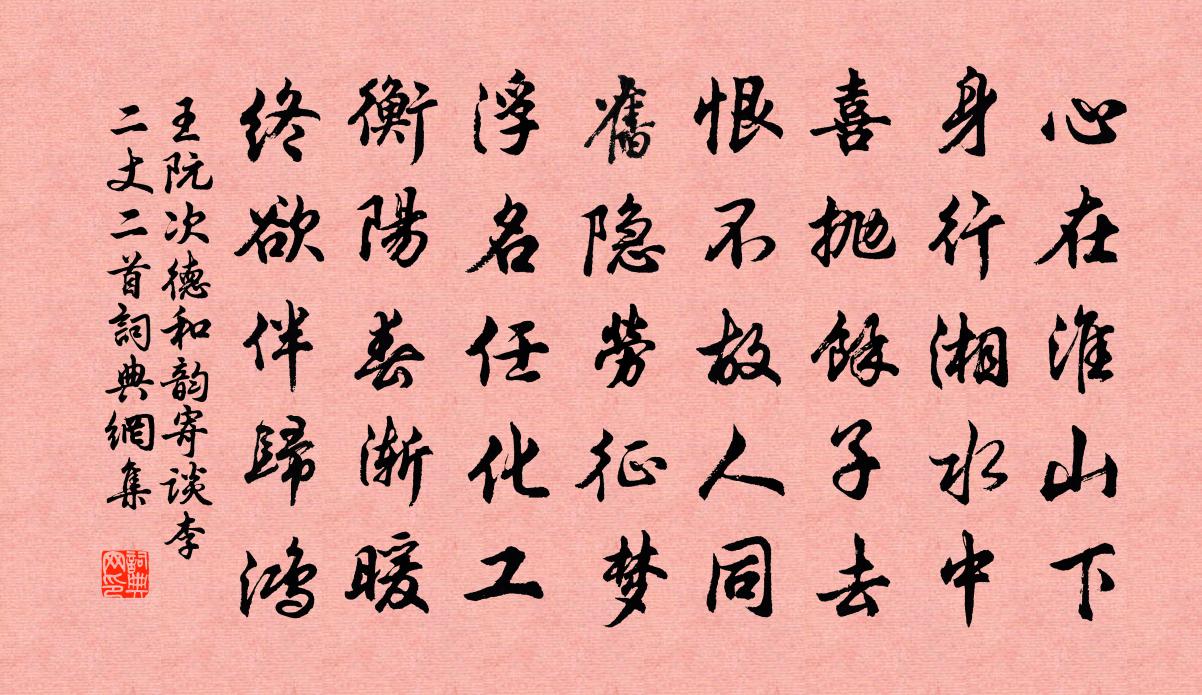 心在淮山下
身行湘水中
喜抛馀子去
恨不故人同
舊隐劳征梦
浮名任化工
衡陽春渐暖
终欲伴歸鸿
王阮次德和韵寄谈李
二丈二首詞典網集
詞典网印